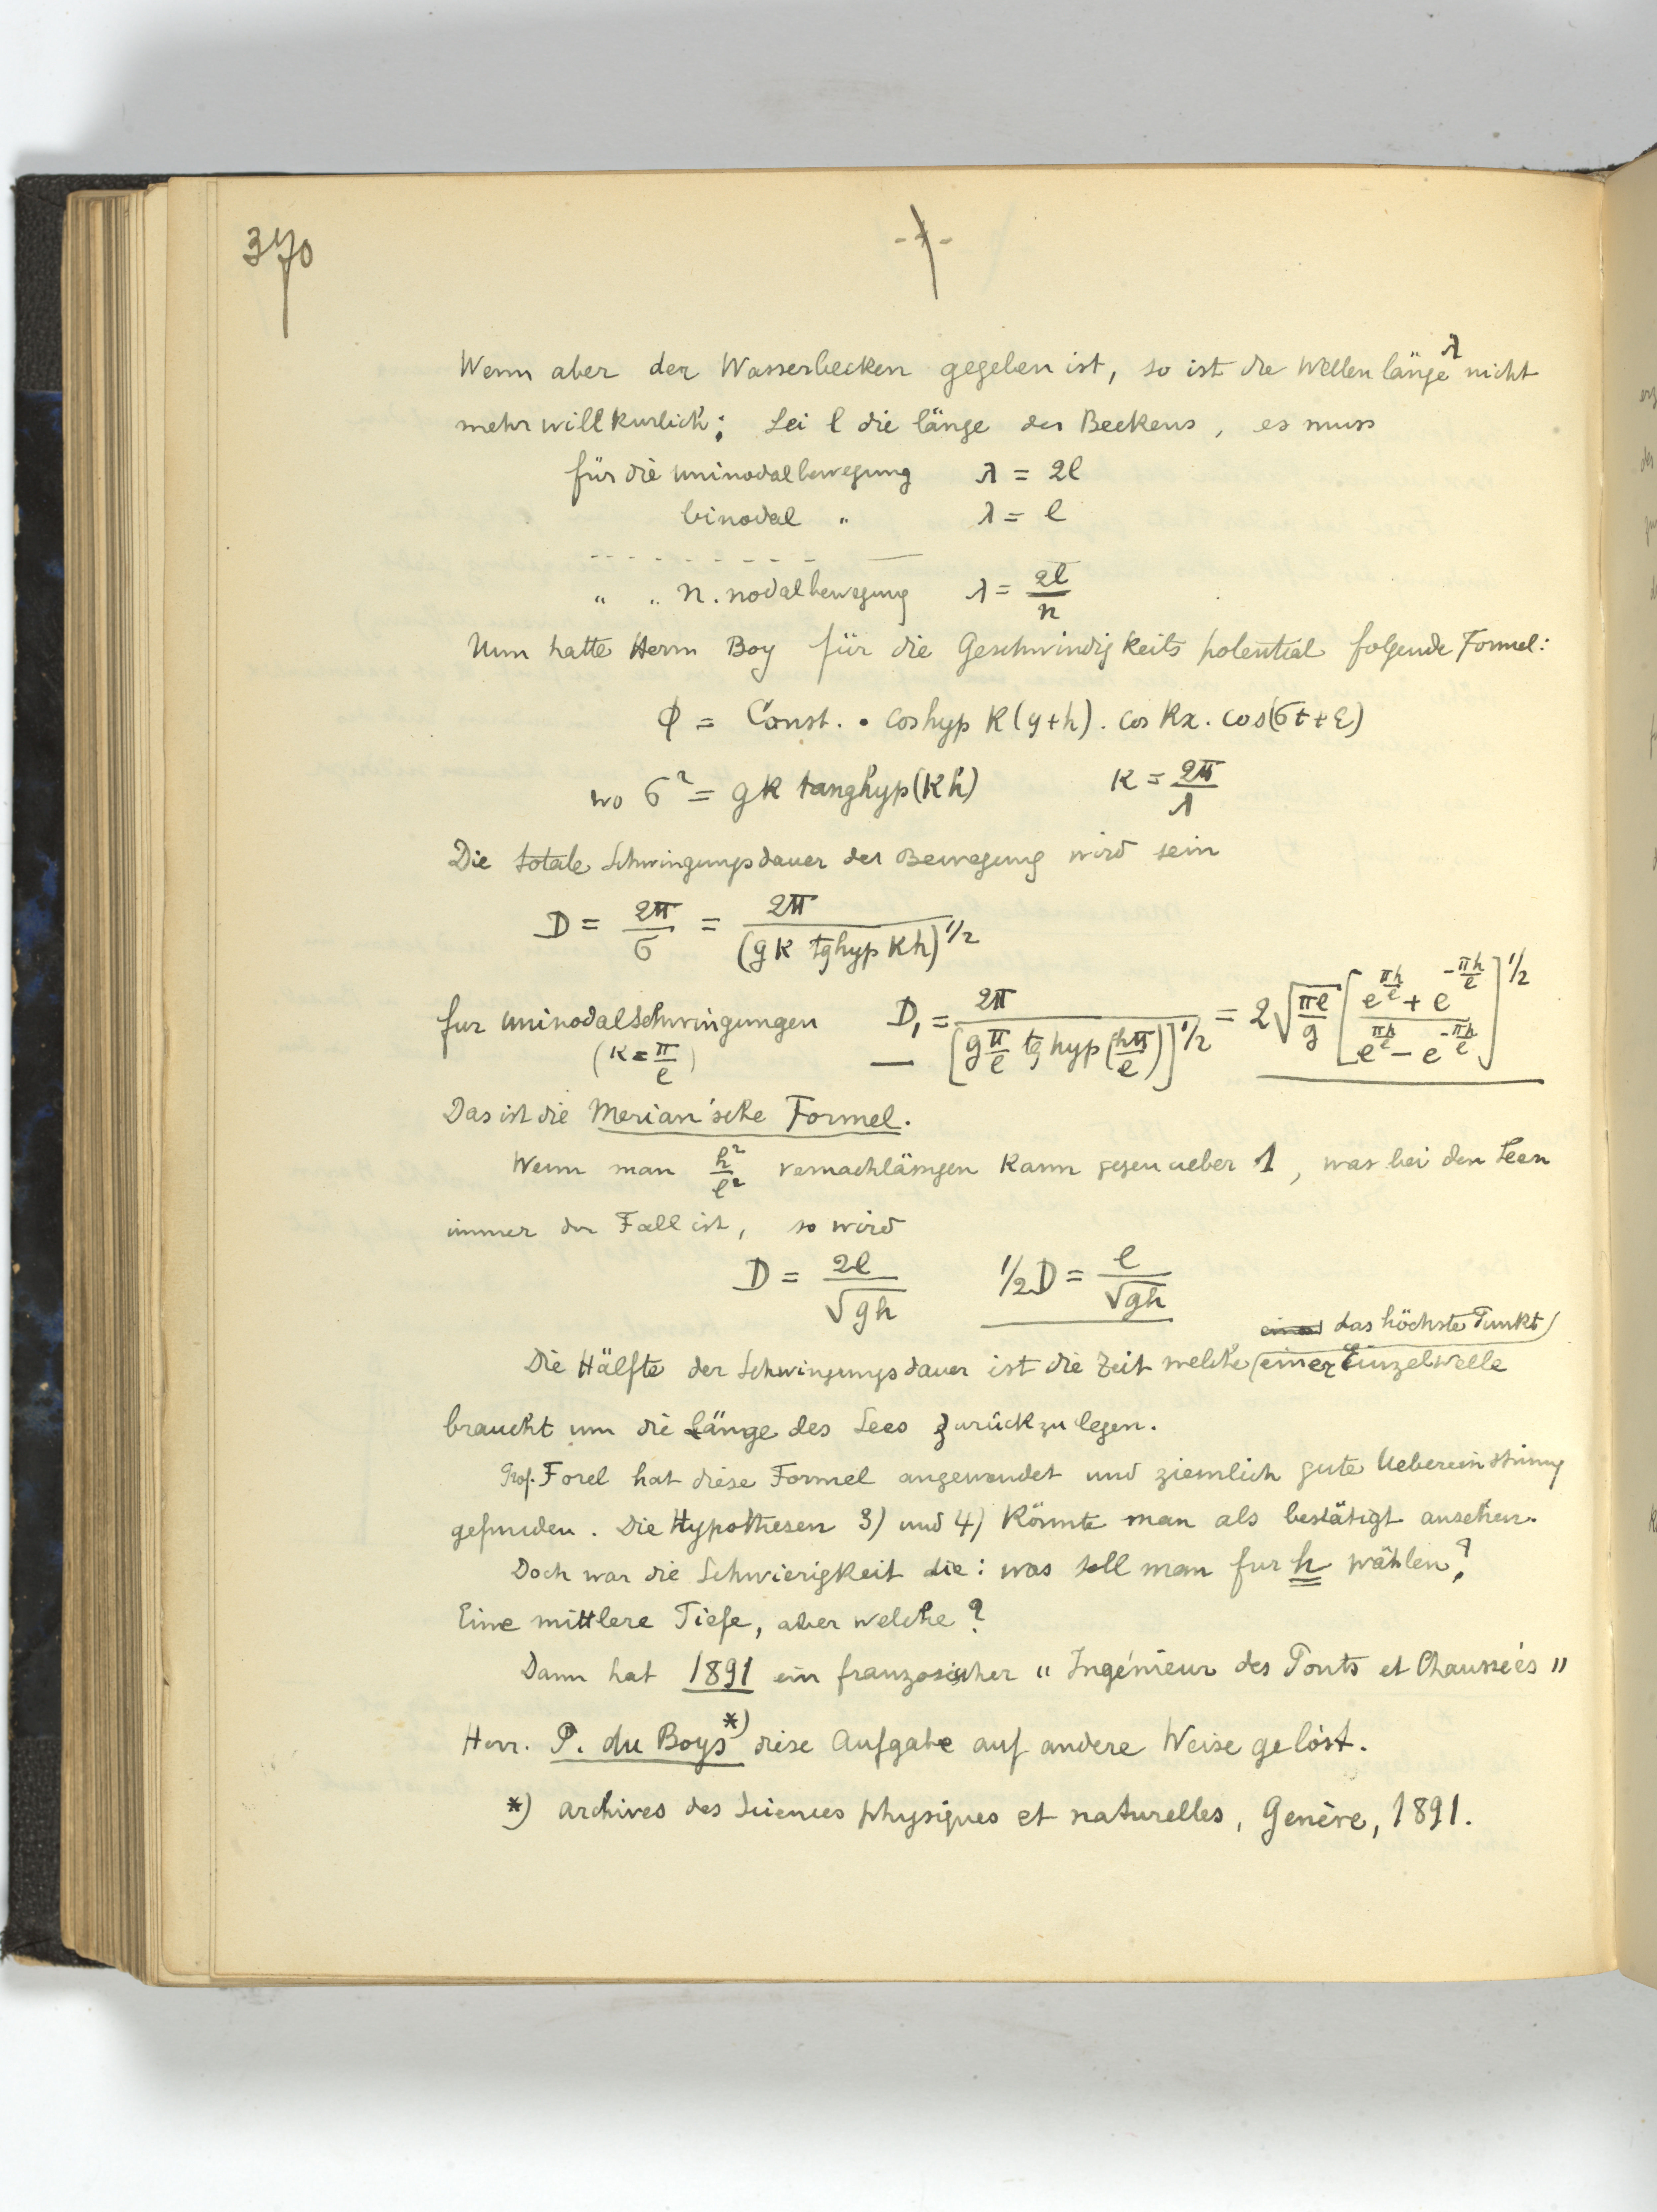 370
-7-
Wenn aber der Wasserbecken gegeben ist, so ist die Wellenlänge λ nicht
mehr willkurlich; Sei l die länge des Beckens, es muss
für die uninodalbewegung λ = 2l
binodal " λ = l
- - - - - - - - - -
" " n. nodalbewegung λ = 2l/n
Nun hatte Herrn Boy für die Geschwindigkeits potential folgende Formel:
ϕ = Const. • coshyp k(y+h) . cos kx . cos(σt+ε)
wo σ² = gk tanghyp(kh) k = 2π/λ
Die totale Schwingungsdauer der Bewegung wird sein
D = 2π/σ = 2π/(gk tghyp kh)^1/2
fur uninodalschwingungen D₁ = 2π/[g π/l tghyp(hπ/l)]^1/2 = 2√(πl/g) [(e^(πh/l) + e^(-πh/l))/(e^(πh/l) - e^(-πh/l))]^1/2
(k = π/l)
Das ist die Merian'sche Formel.
Wenn man h²/l² vernachlässigen kann gegenueber 1, was bei den Seen
immer der Fall ist, so wird
D = 2l/√gh 1/2 D = l/√gh
das höchste Punkt
Die Hälfte der Schwingungsdauer ist die Zeit welche einer Einzelwelle
braucht um die Länge des Sees zurückzulegen.
Prof. Forel hat diese Formel angewendet und ziemlich gute Uebereinstimmg
gefunden. Die Hypothesen 3) und 4) könnte man als bestätigt ansehen.
Doch war die Schwierigkeit die: was soll man fur h wählen?
Eine mittlere Tiefe, aber welche?
Dann hat 1891 ein französischer "Ingénieur des Ponts et Chaussées"
Herr. P. du Boys *) diese Aufgabe auf andere Weise gelöst.
*) Archives des Sciences physiques et naturelles, Genève, 1891.